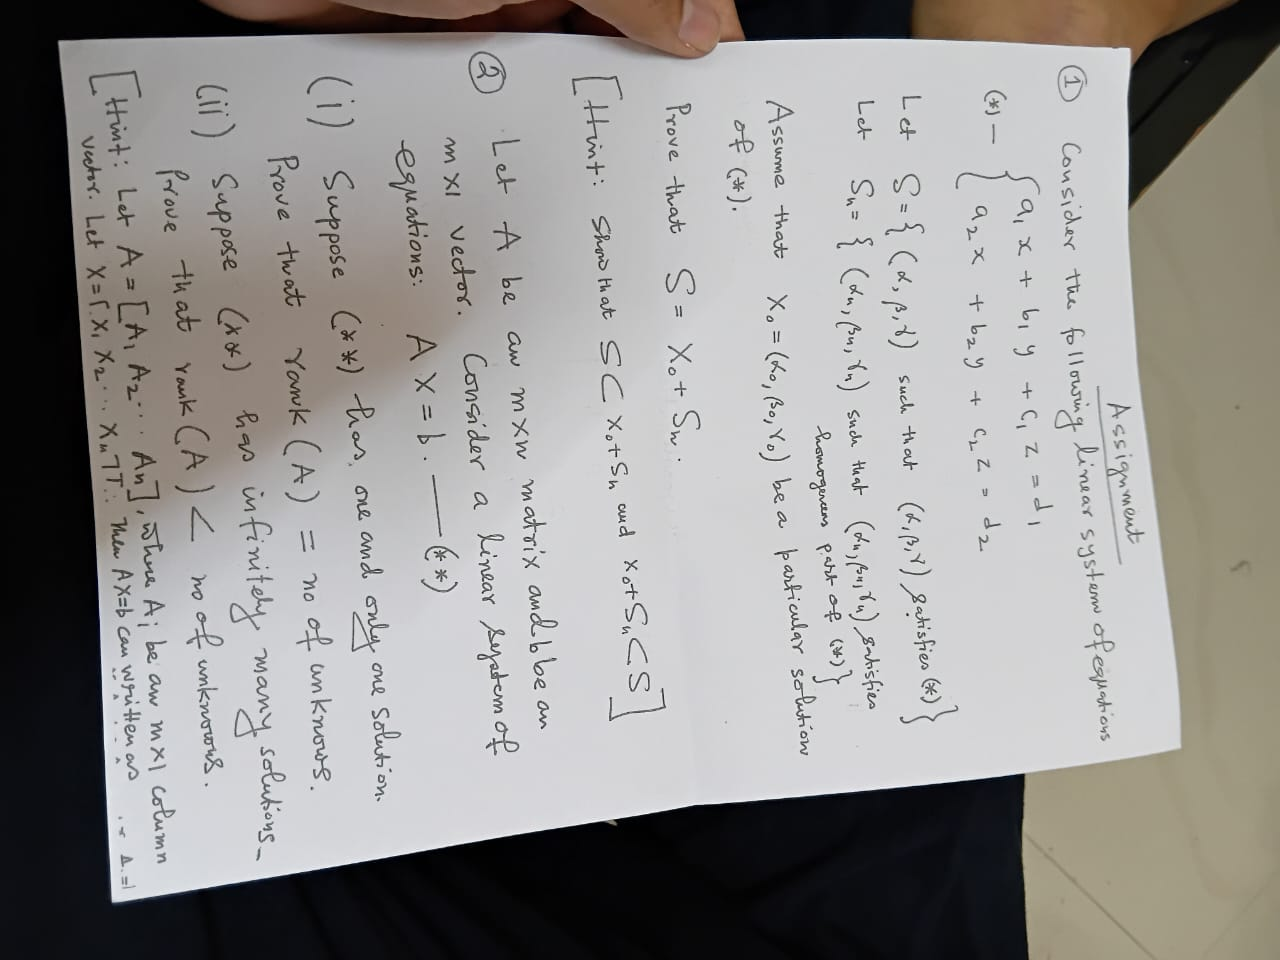 Assignment
① Consider the following linear system of equations
(*) — { a₁x + b₁y + c₁z = d₁
a₂x + b₂y + c₂z = d₂
Let S = { (α, β, γ) such that (α, β, γ) satisfies (*) }
Let Sₕ = { (αₕ, βₕ, γₕ) such that (αₕ, βₕ, γₕ) satisfies
homogeneous part of (*) }
Assume that X₀ = (α₀, β₀, γ₀) be a particular solution
of (*).
Prove that S = X₀ + Sₕ.
[Hint: Show that S ⊂ X₀ + Sₕ and X₀ + Sₕ ⊂ S]
② Let A be an m×n matrix and b be an
m×1 vector. Consider a linear system of
equations: AX = b. —(**)
(i) Suppose (**) has one and only one solution.
Prove that rank(A) = no of unknows.
(ii) Suppose (**) has infinitely many solutions.
Prove that rank(A) < no of unknowns.
[Hint: Let A = [A₁ A₂ ... Aₙ], where Aᵢ be an m×1 column
vector. Let X = [x₁ x₂ ... xₙ]ᵀ. Then AX=b can written as